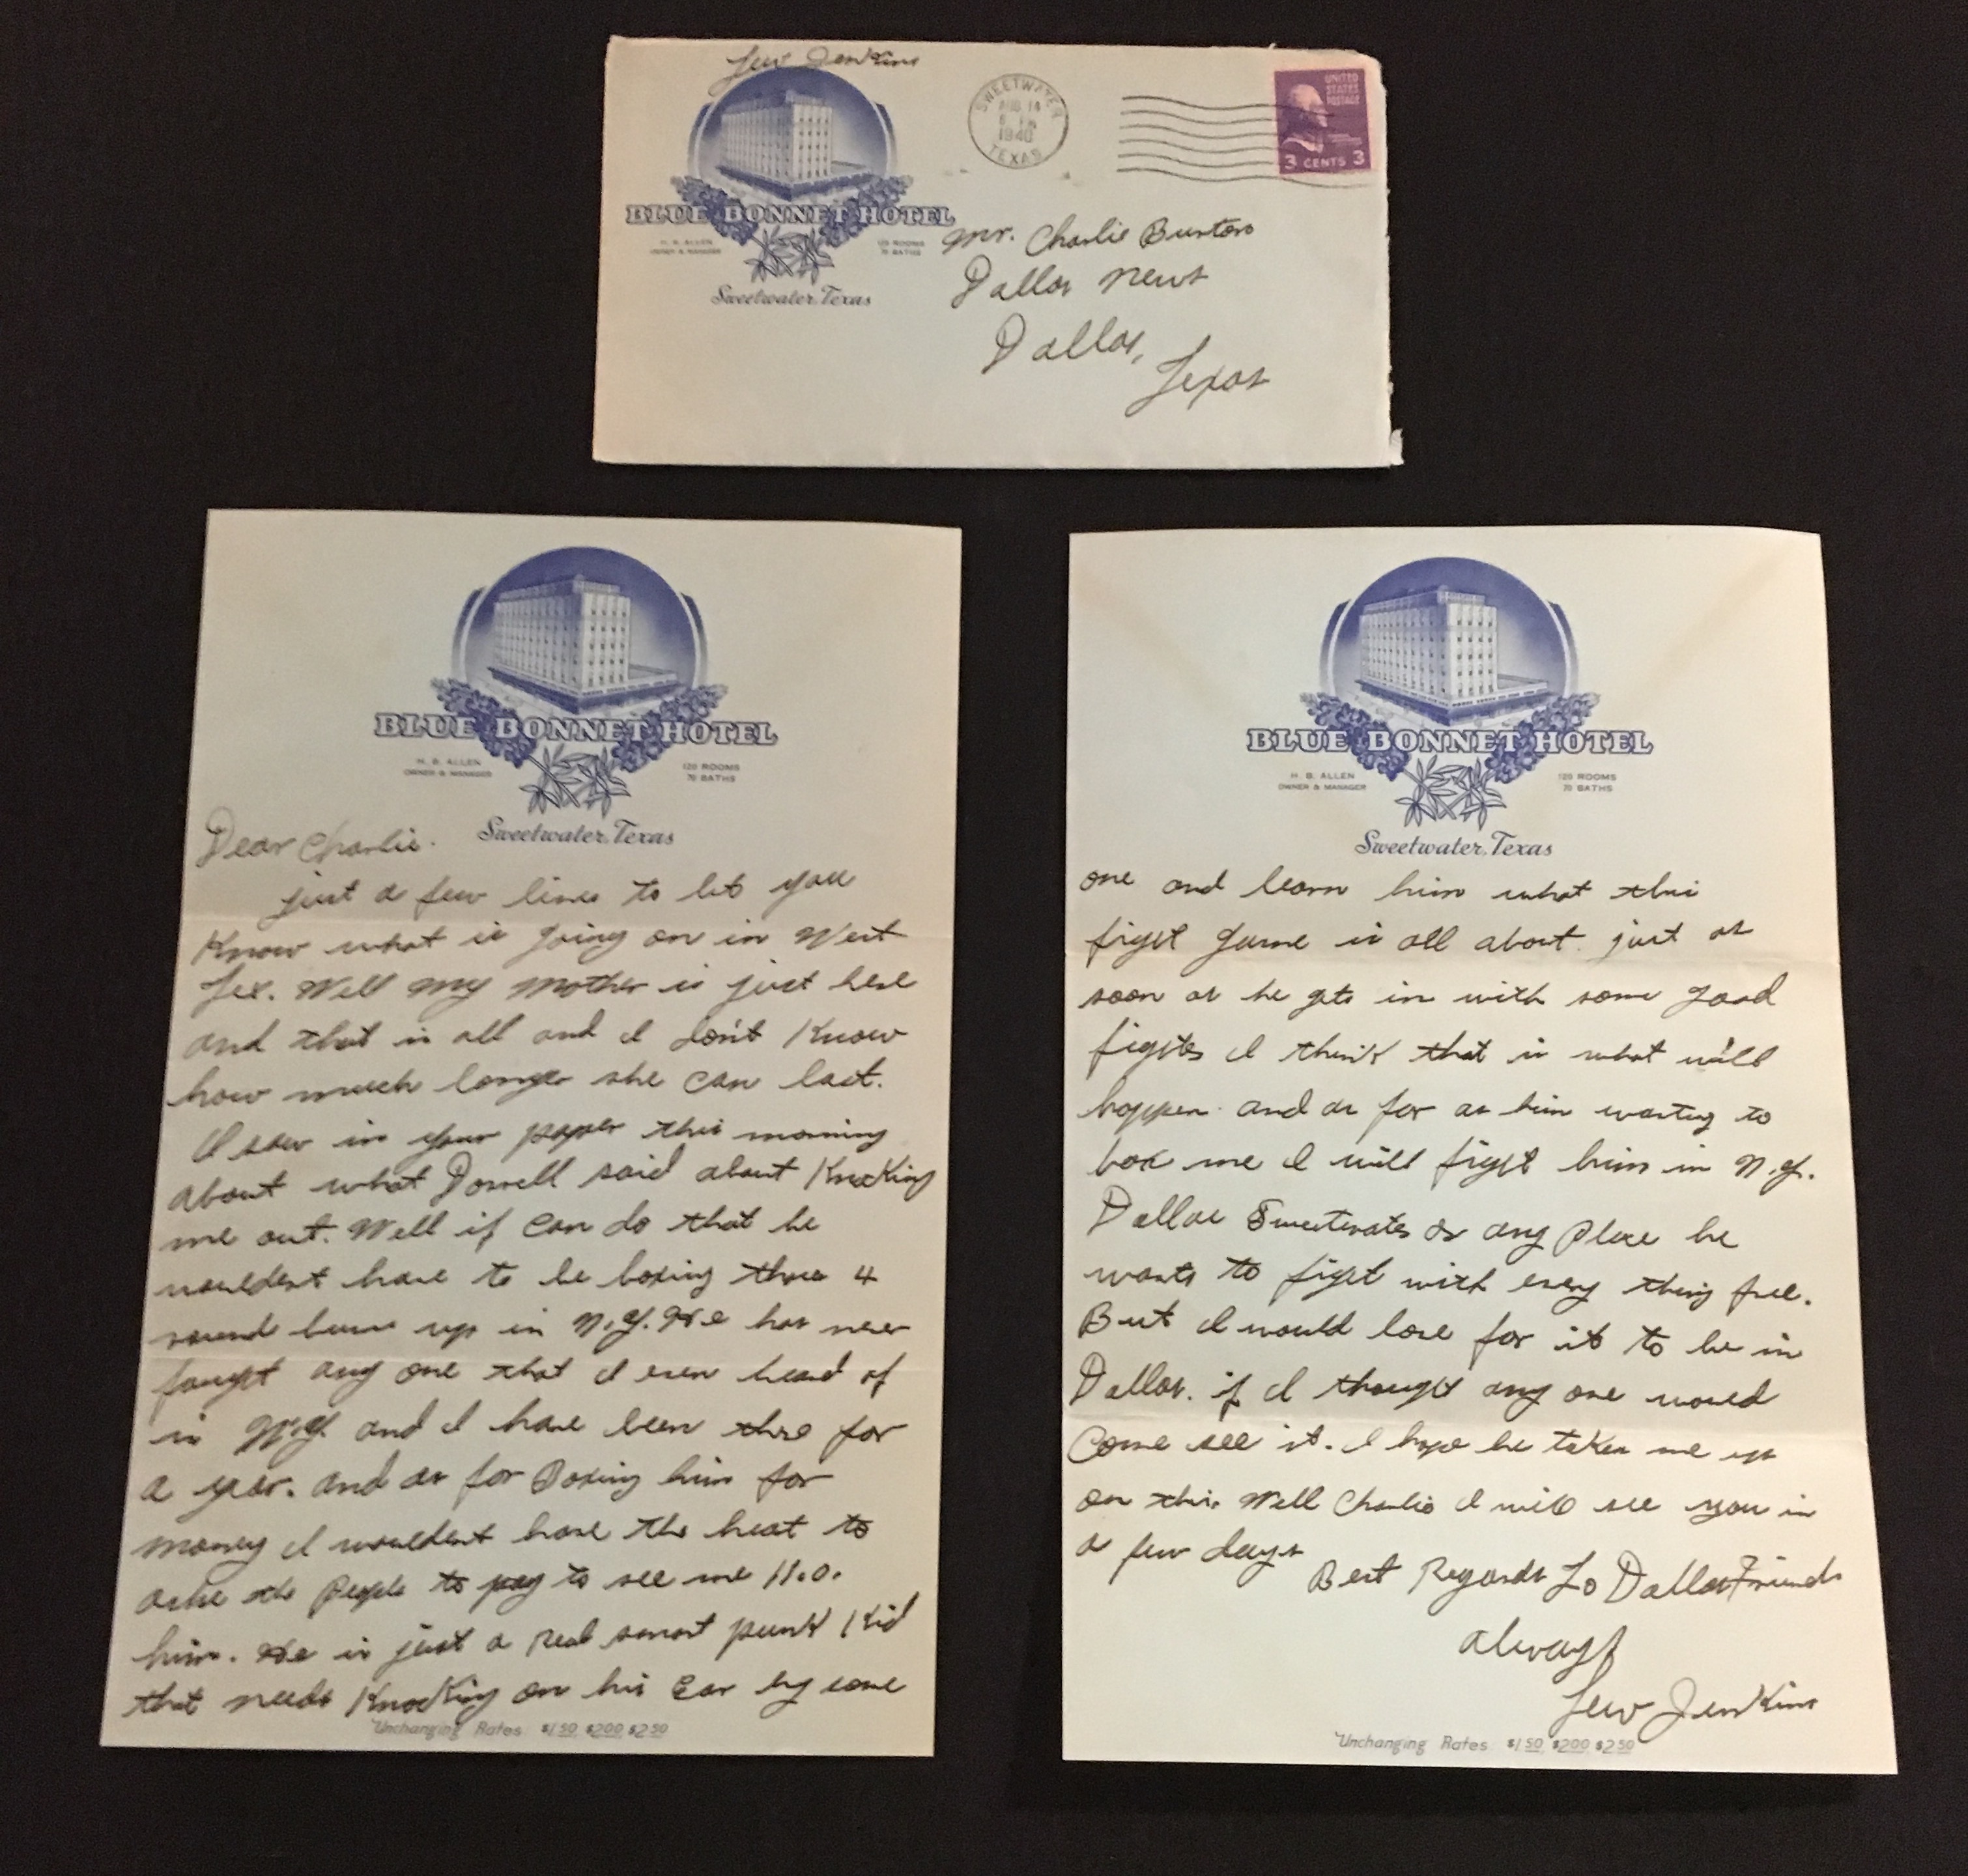 Lew Jenkins
SWEETWATER
AUG 14
1940
TEXAS
UNITED
STATES
POSTAGE
3 CENTS 3
BLUE BONNET HOTEL
H. B. ALLEN
OWNER & MANAGER
120 ROOMS
70 BATHS
Sweetwater, Texas
Mr. Charlie Burton
Dallas News
Dallas,
Texas
BLUE BONNET HOTEL
H. B. ALLEN
OWNER & MANAGER
120 ROOMS
70 BATHS
Sweetwater, Texas
Dear Charlie.
just a few lines to let you
Know what is going on in West
Tex. Well my mother is just here
and that is all and I don't Know
how much longer she can last.
I saw in your paper this morning
about what Dowell said about Knocking
me out. Well if can do that he
wouldent have to be boxing those 4
round bums up in N.Y. He has never
fought any one that I even heard of
in N.Y. and I have been thre for
a year. and as for Boxing him for
money I wouldent have the heat to
aske the People to pay to see me K.O.
him. He is just a real smart punk Kid
that needs Knocking on his Ear by some
"Unchanging Rates $1.50 $2.00 $2.50
BLUE BONNET HOTEL
H. B. ALLEN
OWNER & MANAGER
120 ROOMS
70 BATHS
Sweetwater, Texas
one and learn him what this
fight game is all about. just as
soon as he gets in with some good
fights I think that is what will
happen. and as for as him wanting to
box me I will fight him in N.Y.
Dallas Sweetwater or any Place he
wants to fight with every thing free.
But I would love for it to be in
Dallas. if I thought any one would
Come see it. I hope he takes me up
on this. Well Charlie I will see you in
a few days
Best Regards To Dallas Friends
always
Lew Jenkins
"Unchanging Rates $1.50 $2.00 $2.50